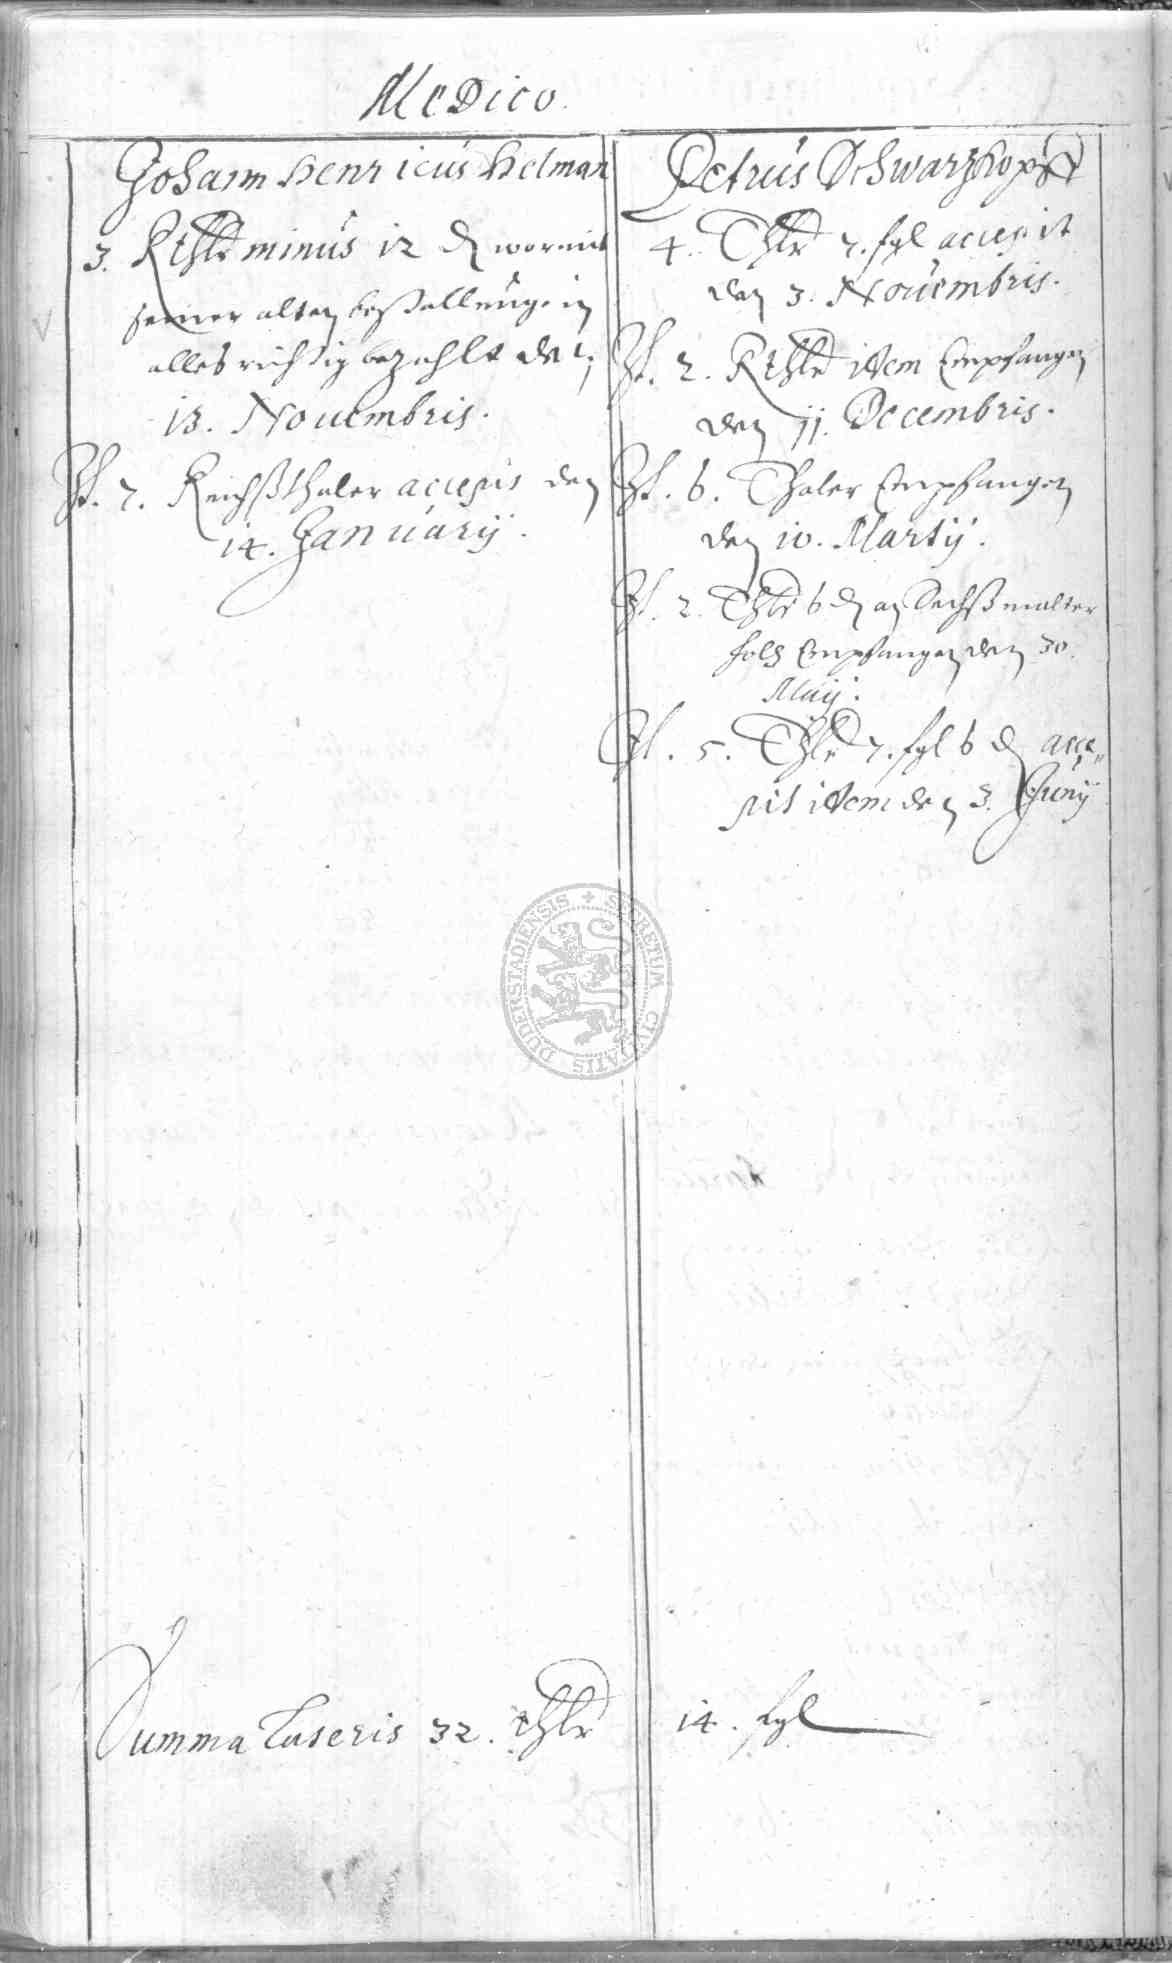 Medico.
Johann Henricus Helman
3. Rthlr minus 12 d wormit
seiner alten bestallunge in
alles richtig bezahlt den
13. Nouembris.
It. 2. Reichßthaler accepit den
14. Januarij.
Petrus Schwarzkopff
4. Thlr 7. sgl accepit
den 3. Nouembris.
It. 2. Rthlr item Empfangen
den 11. Decembris.
It. 6. Thaler Empfangen
den 10. Martij.
It. 2. Thlr 6 d an Sechß malter
holtz Empfangen den 30.
Maij.
It. 5. Thlr 7. sgl 6 d acce„
pit item den 3. Junij
SECRETUM CIVITATIS DUDERSTADIENSIS
Summa Lateris 32. thlr 14. sgl